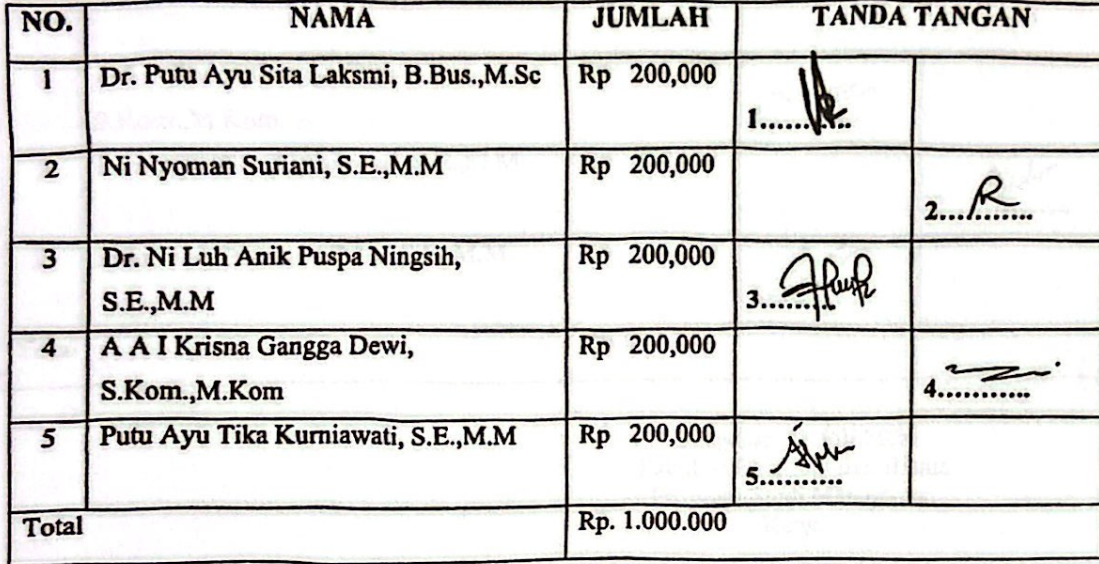 NO. NAMA JUMLAH TANDA TANGAN
1 Dr. Putu Ayu Sita Laksmi, B.Bus.,M.Sc Rp 200,000
1............
2 Ni Nyoman Suriani, S.E.,M.M Rp 200,000
2............
3 Dr. Ni Luh Anik Puspa Ningsih, Rp 200,000
S.E.,M.M
3..........
4 A A I Krisna Gangga Dewi, Rp 200,000
S.Kom.,M.Kom
4............
5 Putu Ayu Tika Kurniawati, S.E.,M.M Rp 200,000
5...........
Total Rp. 1.000.000